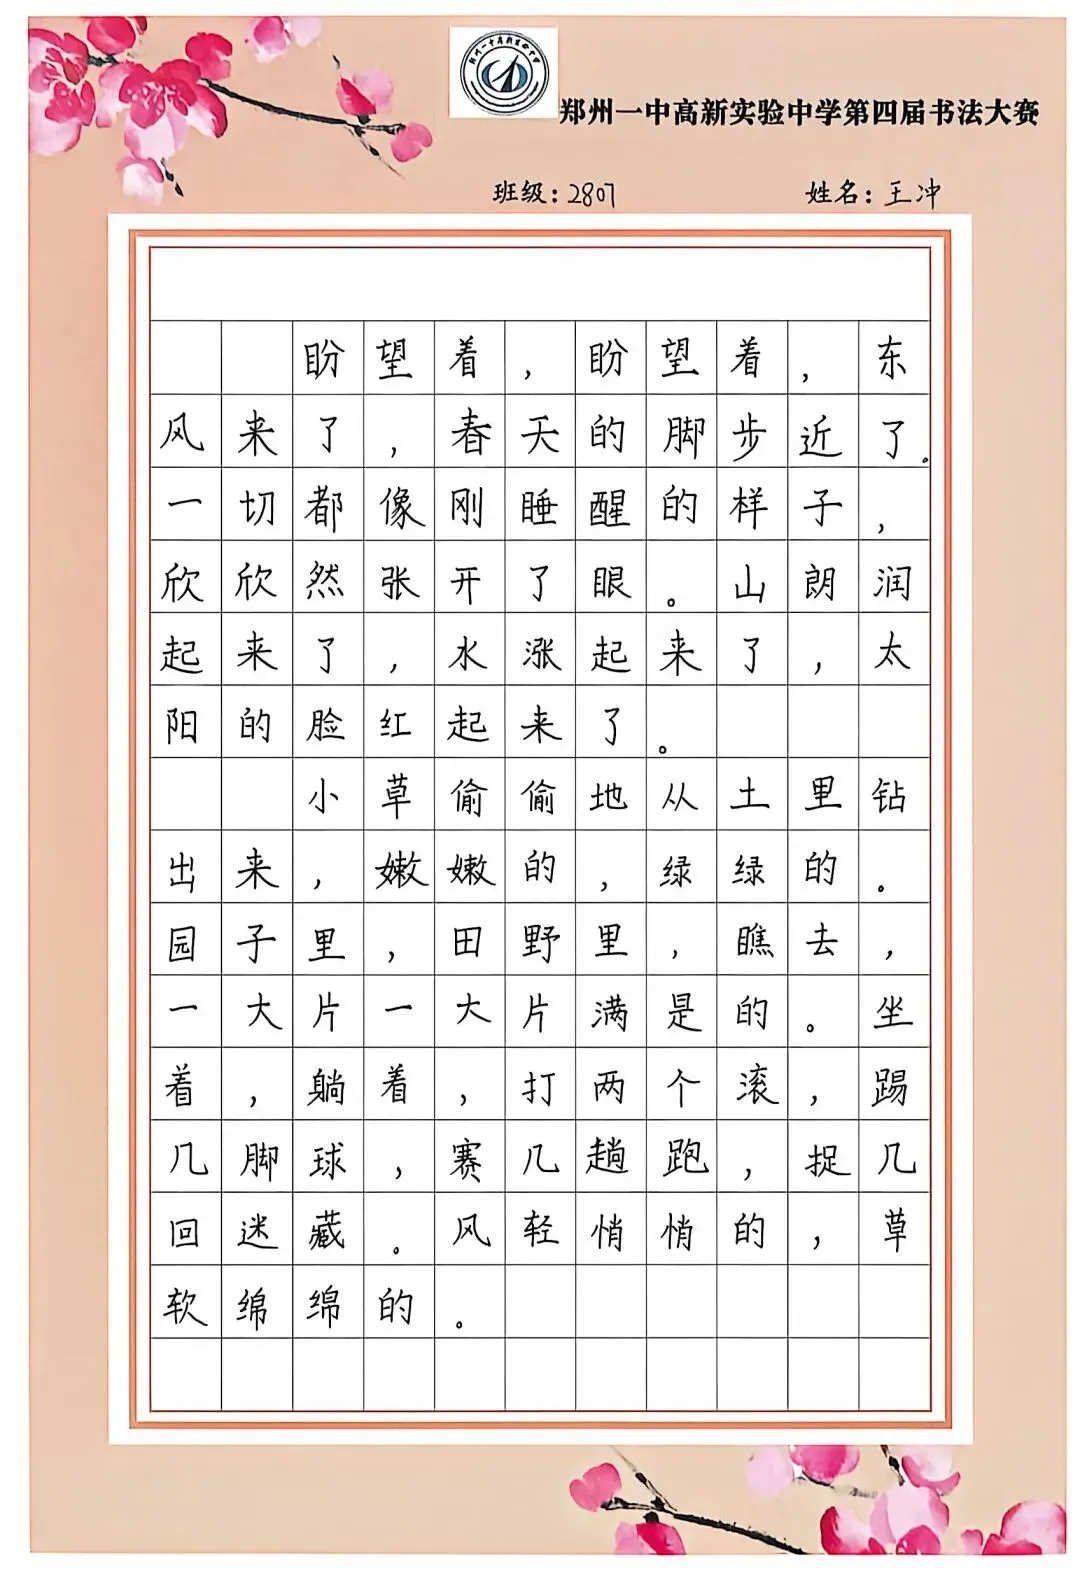 郑州一中高新实验中学第四届书法大赛
班级:2807 姓名:王冲
盼望着,盼望着,东
风来了,春天的脚步近了。
一切都像刚睡醒的样子,
欣欣然张开了眼。山朗润
起来了,水涨起来了,太
阳的脸红起来了。
小草偷偷地从土里钻
出来,嫩嫩的,绿绿的。
园子里,田野里,瞧去,
一大片一大片满是的。坐
着,躺着,打两个滚,踢
几脚球,赛几趟跑,捉几
回迷藏。风轻悄悄的,草
软绵绵的。